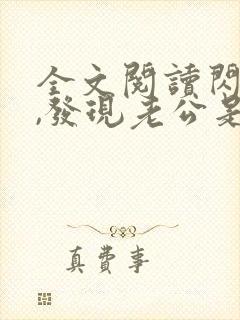 全文閱讀閃
,發現老公是
真費事